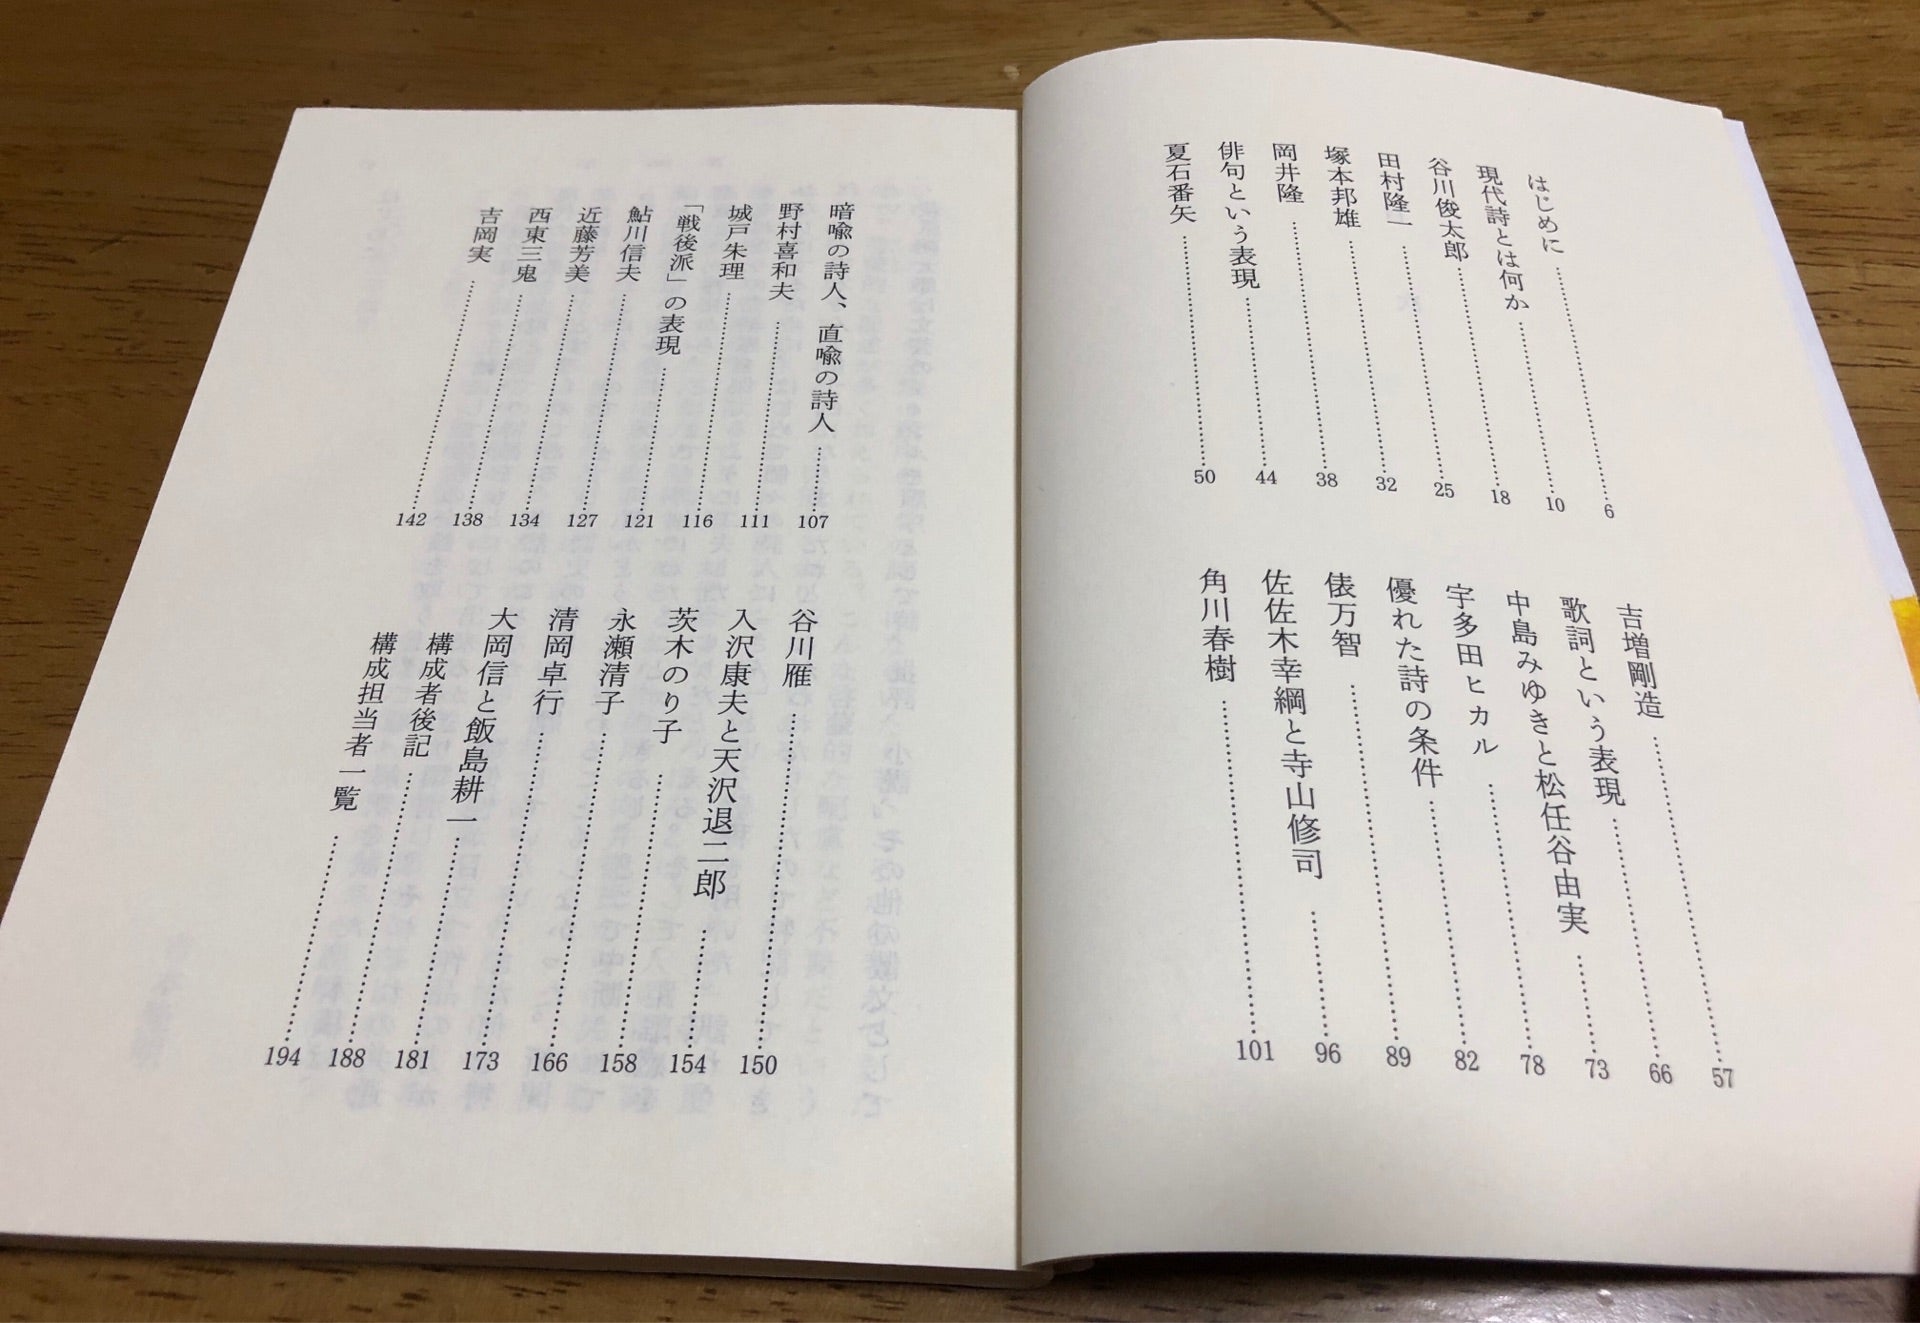 はじめに……6
現代詩とは何か……10
谷川俊太郎……18
田村隆一……25
塚本邦雄……32
岡井隆……38
俳句という表現……44
夏石番矢……50
吉増剛造……57
歌詞という表現……66
中島みゆきと松任谷由実……73
宇多田ヒカル……78
優れた詩の条件……82
俵万智……89
佐佐木幸綱と寺山修司……96
角川春樹……101
暗喩の詩人、直喩の詩人……107
野村喜和夫……111
城戸朱理……116
「戦後派」の表現……121
鮎川信夫……127
近藤芳美……134
西東三鬼……138
吉岡実……142
谷川雁……150
入沢康夫と天沢退二郎……154
茨木のり子……158
永瀬清子……166
清岡卓行……173
大岡信と飯島耕一……181
構成者後記……188
構成担当者一覧……194